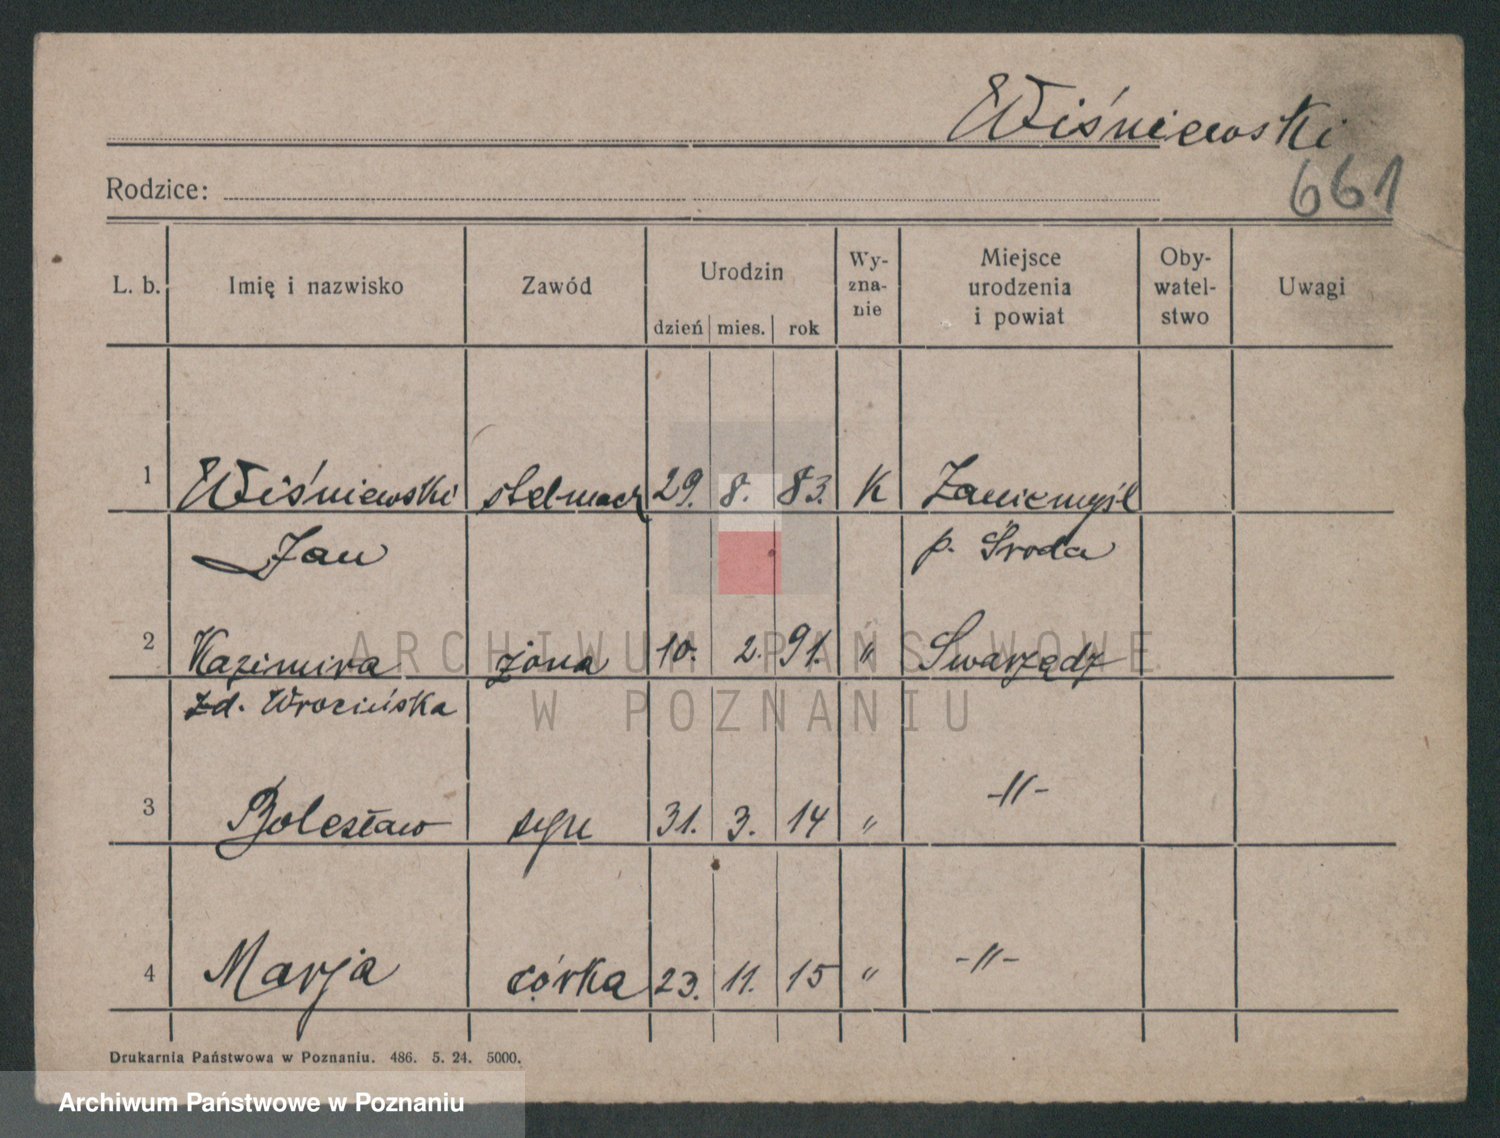 Wiśniewski
Rodzice:
661
L. b. Imię i nazwisko Zawód Urodzin Wy- Miejsce Oby-
zna- urodzenia watel- Uwagi
dzień mies. rok nie i powiat stwo
1 Wiśniewski stelmach 29. 8. 83. K Zaniemyśl
Jan p. Środa
2 Kazimira żona 10. 2. 91. " Swarzędz
zd. Wrocińska
3 Bolesław syn 31. 3. 14 " -"-
4 Marja córka 23. 11. 15 " -"-
ARCHIWUM PAŃSTWOWE
W POZNANIU
Drukarnia Państwowa w Poznaniu. 486. 5. 24. 5000.
Archiwum Państwowe w Poznaniu